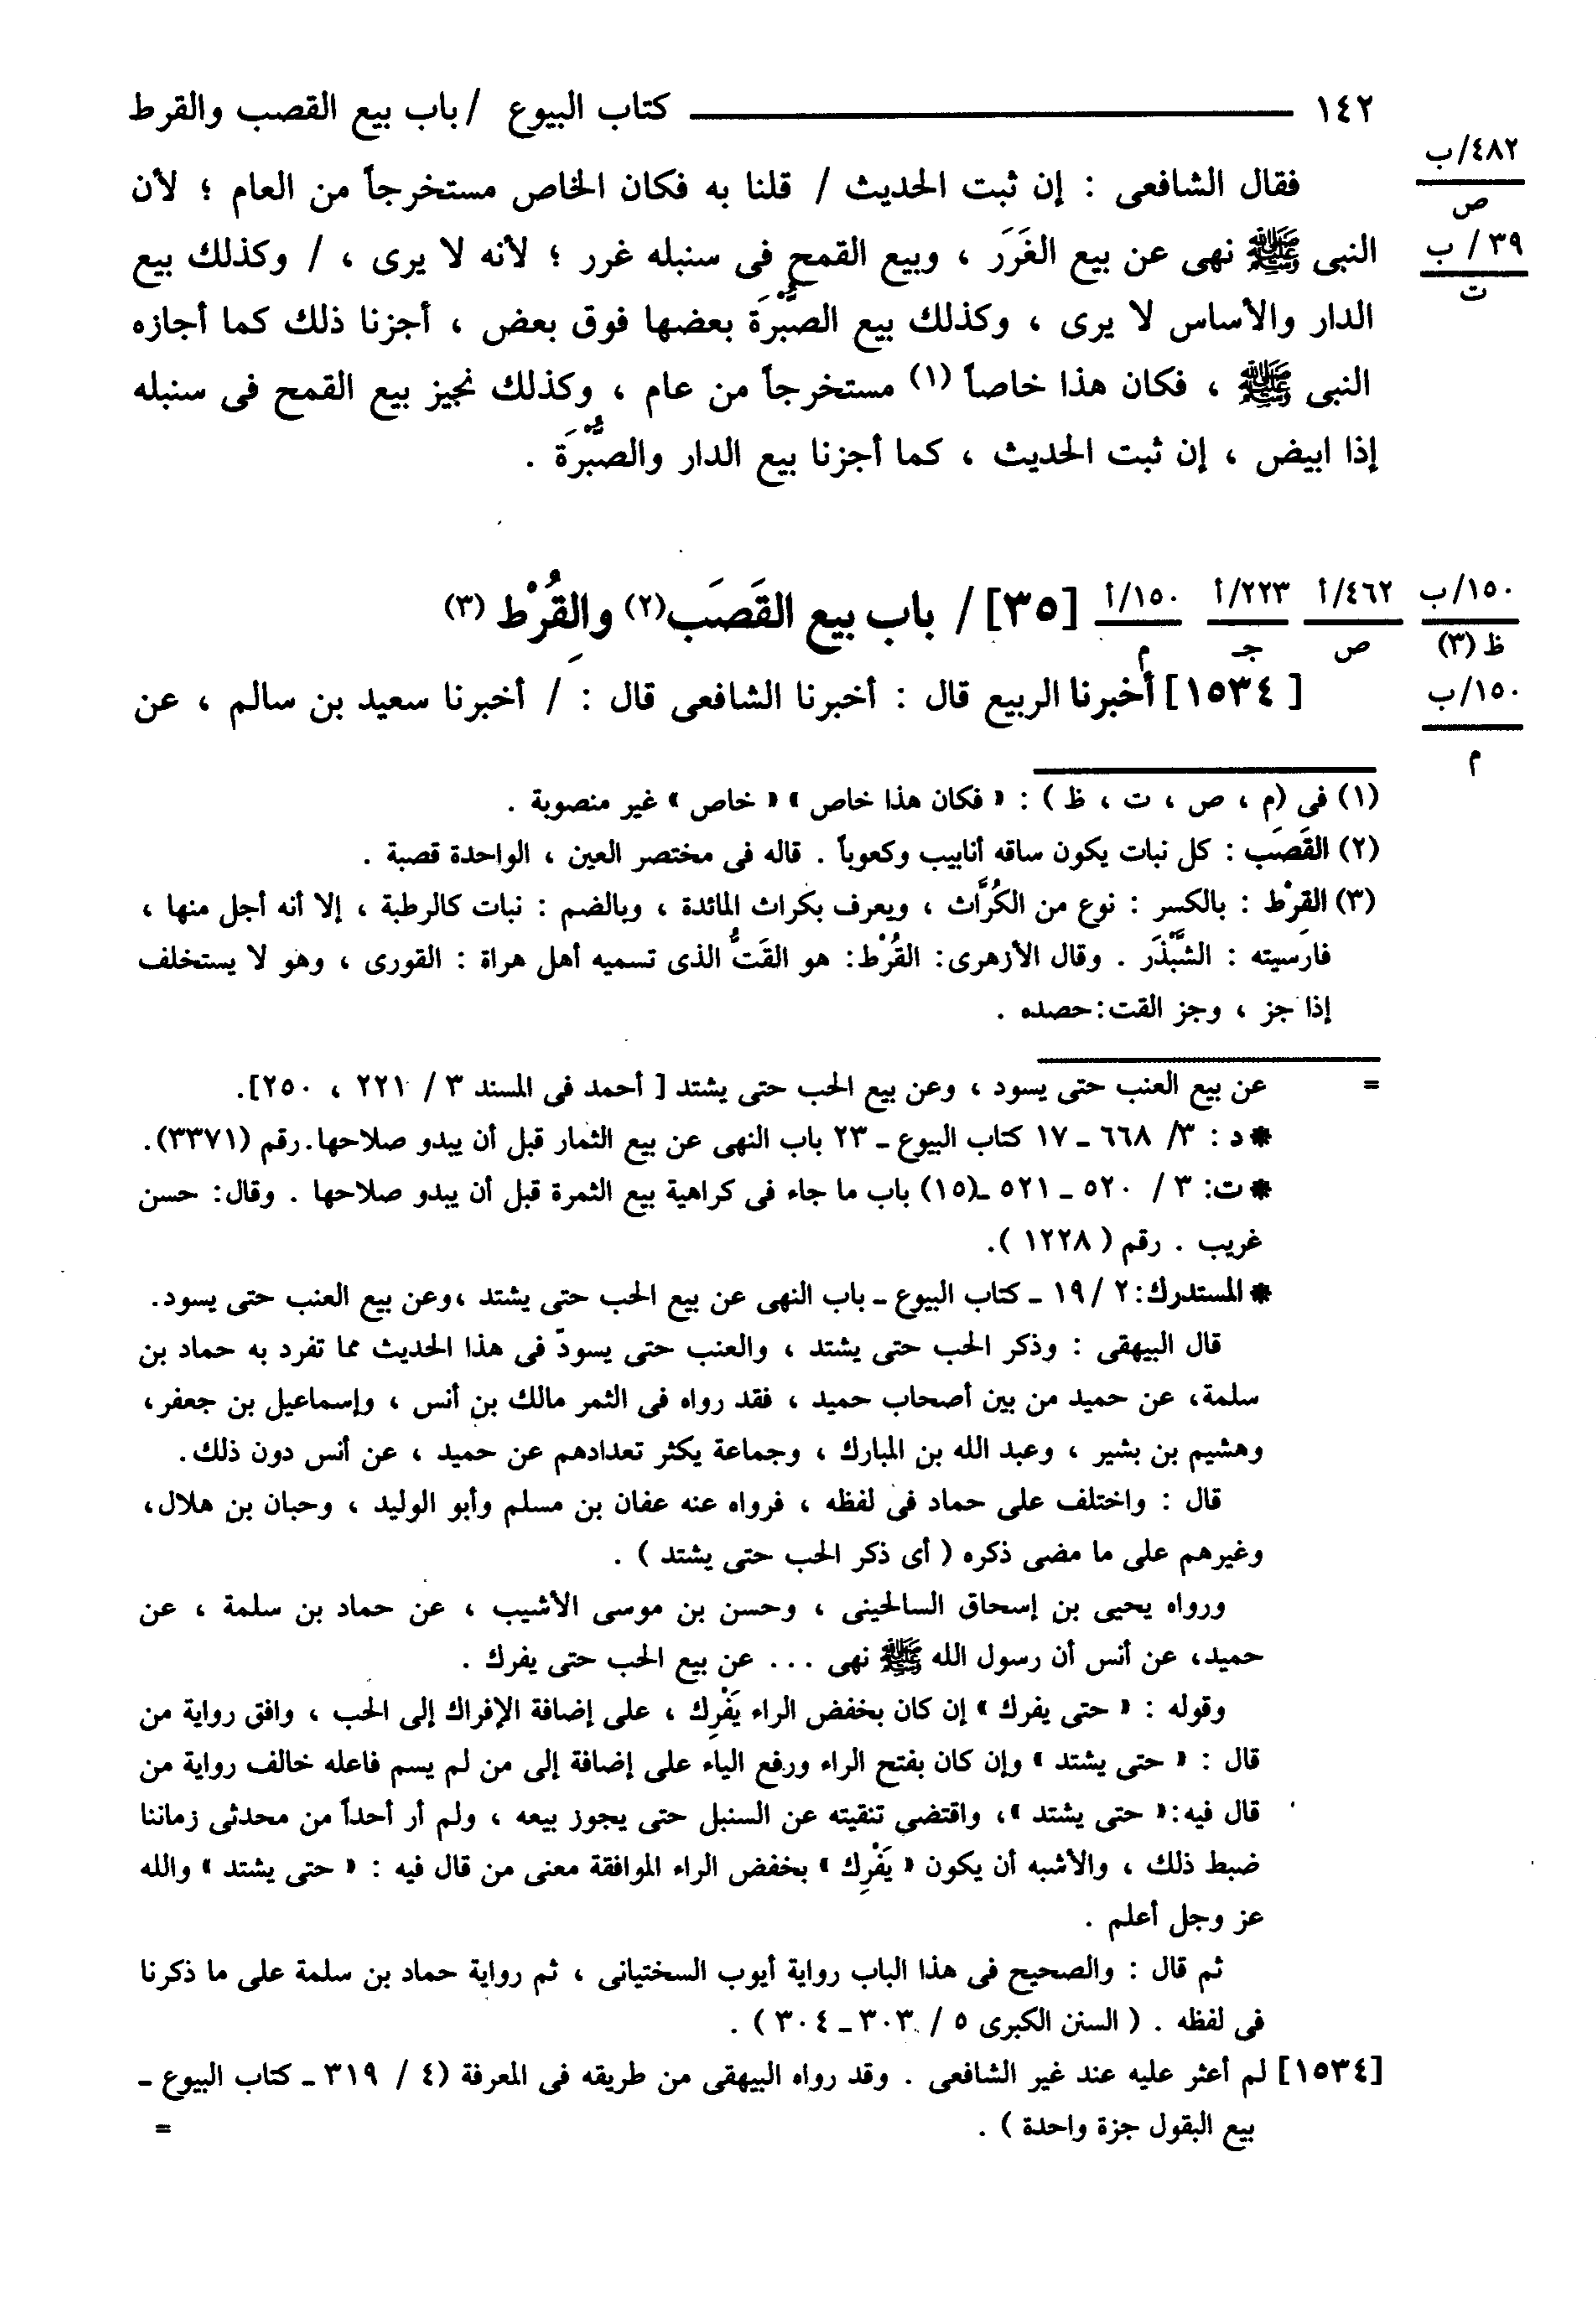 ١٤٢ ــــــــــــــــــــــــــــــــــ كتاب البيوع / باب بيع القصب والقرط
٤٨٢/ب
ص
فقال الشافعى : إن ثبت الحديث / قلنا به فكان الخاص مستخرجاً من العام ؛ لأن
٣٩ / ب
ت
النبى ﷺ نهى عن بيع الغَرَرَ ، وبيع القمح فى سنبله غرر ؛ لأنه لا يرى ، / وكذلك بيع
الدار والأساس لا يرى ، وكذلك بيع الصُّبْرَة بعضها فوق بعض ، أجزنا ذلك كما أجازه
النبى ﷺ ، فكان هذا خاصاً (١) مستخرجاً من عام ، وكذلك نجيز بيع القمح فى سنبله
إذا ابيض ، إن ثبت الحديث ، كما أجزنا بيع الدار والصُّبْرَة .
١٥٠/ب
ظ (٣)
٤٦٢/أ
ص
٢٢٣/أ
جـ
١٥٠/أ
م
[٣٥] / باب بيع القَصَب(٢) والقُِرْط (٣)
١٥٠/ب
م
[ ١٥٣٤] أخبرنا الربيع قال : أخبرنا الشافعى قال : / أخبرنا سعيد بن سالم ، عن
(١) فى (م ، ص ، ت ، ظ ) : « فكان هذا خاص » « خاص » غير منصوبة .
(٢) القَصَب : كل نبات يكون ساقه أنابيب وكعوباً . قاله فى مختصر العين ، الواحدة قصبة .
(٣) القِرْط : بالكسر : نوع من الكُرَّاث ، ويعرف بكراث المائدة ، وبالضم : نبات كالرطبة ، إلا أنه أجل منها ،
فارسيته : الشَّبْذَر . وقال الأزهرى: القُرْط: هو القَتُّ الذى تسميه أهل هراة : القورى ، وهو لا يستخلف
إذا جز ، وجز القت:حصده .
= عن بيع العنب حتى يسود ، وعن بيع الحب حتى يشتد [ أحمد فى المسند ٣ / ٢٢١ ، ٢٥٠].
* د : ٣/ ٦٦٨ ـ ١٧ كتاب البيوع ـ ٢٣ باب النهى عن بيع الثمار قبل أن يبدو صلاحها.رقم (٣٣٧١).
* ت: ٣ / ٥٢٠ ـ ٥٢١ ـ(١٥) باب ما جاء فى كراهية بيع الثمرة قبل أن يبدو صلاحها . وقال: حسن
غريب . رقم ( ١٢٢٨ ).
* المستدرك: ٢ /١٩ ـ كتاب البيوع ـ باب النهى عن بيع الحب حتى يشتد ،وعن بيع العنب حتى يسود.
قال البيهقى : وذكر الحب حتى يشتد ، والعنب حتى يسودّ فى هذا الحديث مما تفرد به حماد بن
سلمة، عن حميد من بين أصحاب حميد ، فقد رواه فى الثمر مالك بن أنس ، وإسماعيل بن جعفر،
وهشيم بن بشير ، وعبد الله بن المبارك ، وجماعة يكثر تعدادهم عن حميد ، عن أنس دون ذلك.
قال : واختلف على حماد فى لفظه ، فرواه عنه عفان بن مسلم وأبو الوليد ، وحبان بن هلال،
وغيرهم على ما مضى ذكره ( أى ذكر الحب حتى يشتد ) .
ورواه يحيى بن إسحاق السالحينى ، وحسن بن موسى الأشيب ، عن حماد بن سلمة ، عن
حميد، عن أنس أن رسول الله ﷺ نهى ... عن بيع الحب حتى يفرك .
وقوله : « حتى يفرك » إن كان بخفض الراء يَفْرِك ، على إضافة الإفراك إلى الحب ، وافق رواية من
قال : « حتى يشتد » وإن كان بفتح الراء ورفع الياء على إضافة إلى من لم يسم فاعله خالف رواية من
قال فيه:« حتى يشتد »، واقتضى تنقيته عن السنبل حتى يجوز بيعه ، ولم أر أحداً من محدثى زماننا
ضبط ذلك ، والأشبه أن يكون « يَفْرِك » بخفض الراء الموافقة معنى من قال فيه : « حتى يشتد » والله
عز وجل أعلم .
ثم قال : والصحيح فى هذا الباب رواية أيوب السختيانى ، ثم رواية حماد بن سلمة على ما ذكرنا
فى لفظه . ( السنن الكبرى ٥ / ٣٠٣ ـ ٣٠٤ ) .
[١٥٣٤] لم أعثر عليه عند غير الشافعى . وقد رواه البيهقى من طريقه فى المعرفة (٤ / ٣١٩ ـ كتاب البيوع ـ
بيع البقول جزة واحدة ) . =